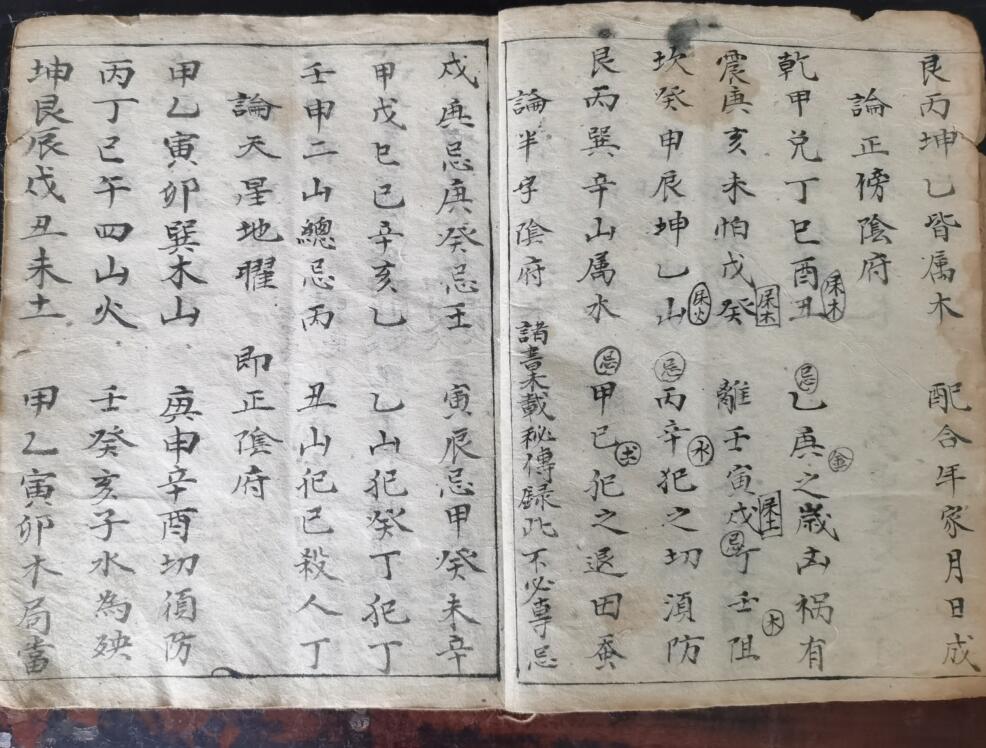 艮丙坤乙皆属木 配合年家月日成
論正傍陰府
乾甲兑丁巳酉丑 属木 忌 乙庚之歲 金 凶祸有
震庚亥未怕戊癸 属木 離壬寅戍 属土 忌 丁壬阻 木
坎癸申辰坤乙山 属火 忌 丙辛犯之切湏防 水
艮丙巽辛山属水 忌 甲己犯之退田蚕 土
論半字陰府 諸書未載秘傳録此不必專忌
戍庚忌庚癸忌壬 寅辰忌甲癸未辛
甲戊巳己辛亥乙 乙山犯癸丁犯丁
壬申二山總忌丙 丑山犯己殺人丁
論天星地曜 即正陰府
甲乙寅卯巽木山 庚申辛酉切須防
丙丁巳午四山火 壬癸亥子水為殃
坤艮辰戊丑未土 甲乙寅卯木局當